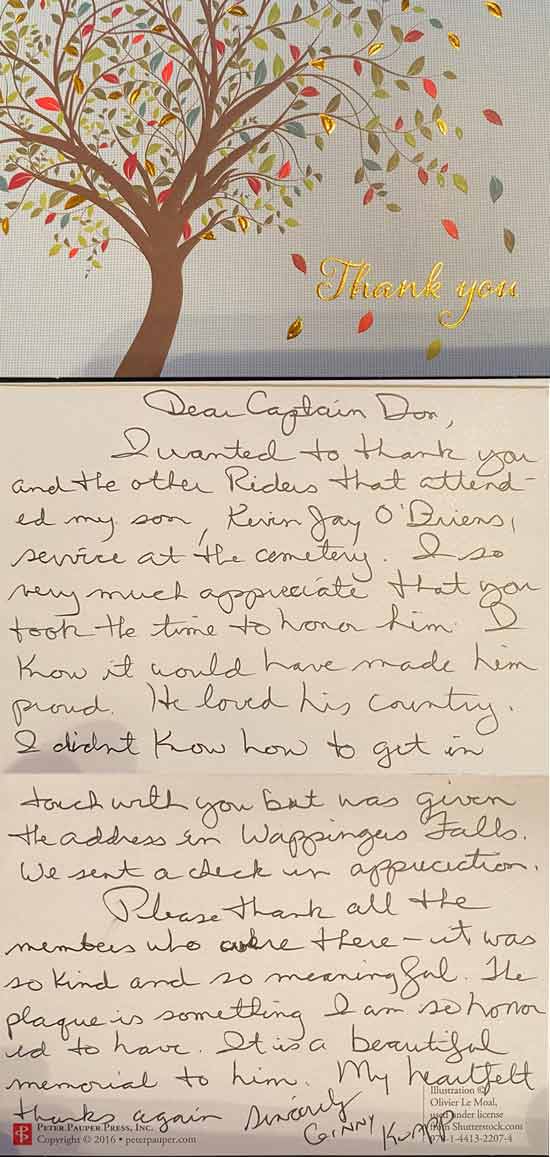 Thank you
Dear Captain Don,
I wanted to thank you
and the other Riders that attend-
ed my son, Kevin Jay O'Briens,
service at the cemetery. I so
very much appreciate that you
took the time to honor him. I
know it would have made him
proud. He loved his country.
I didnt know how to get in
touch with you but was given
the address in Wappingers Falls.
We sent a check in appreciation.
Please thank all the
members who were there - it was
so kind and so meaningful. The
plaque is something I am so honor
ed to have. It is a beautiful
memorial to him. My heartfelt
thanks again Sincerely
Ginny
PETER PAUPER PRESS, INC.
Copyright © 2016 • peterpauper.com
Illustration ©
Olivier Le Moal,
used under license
from Shutterstock.com
978-1-4413-2207-4